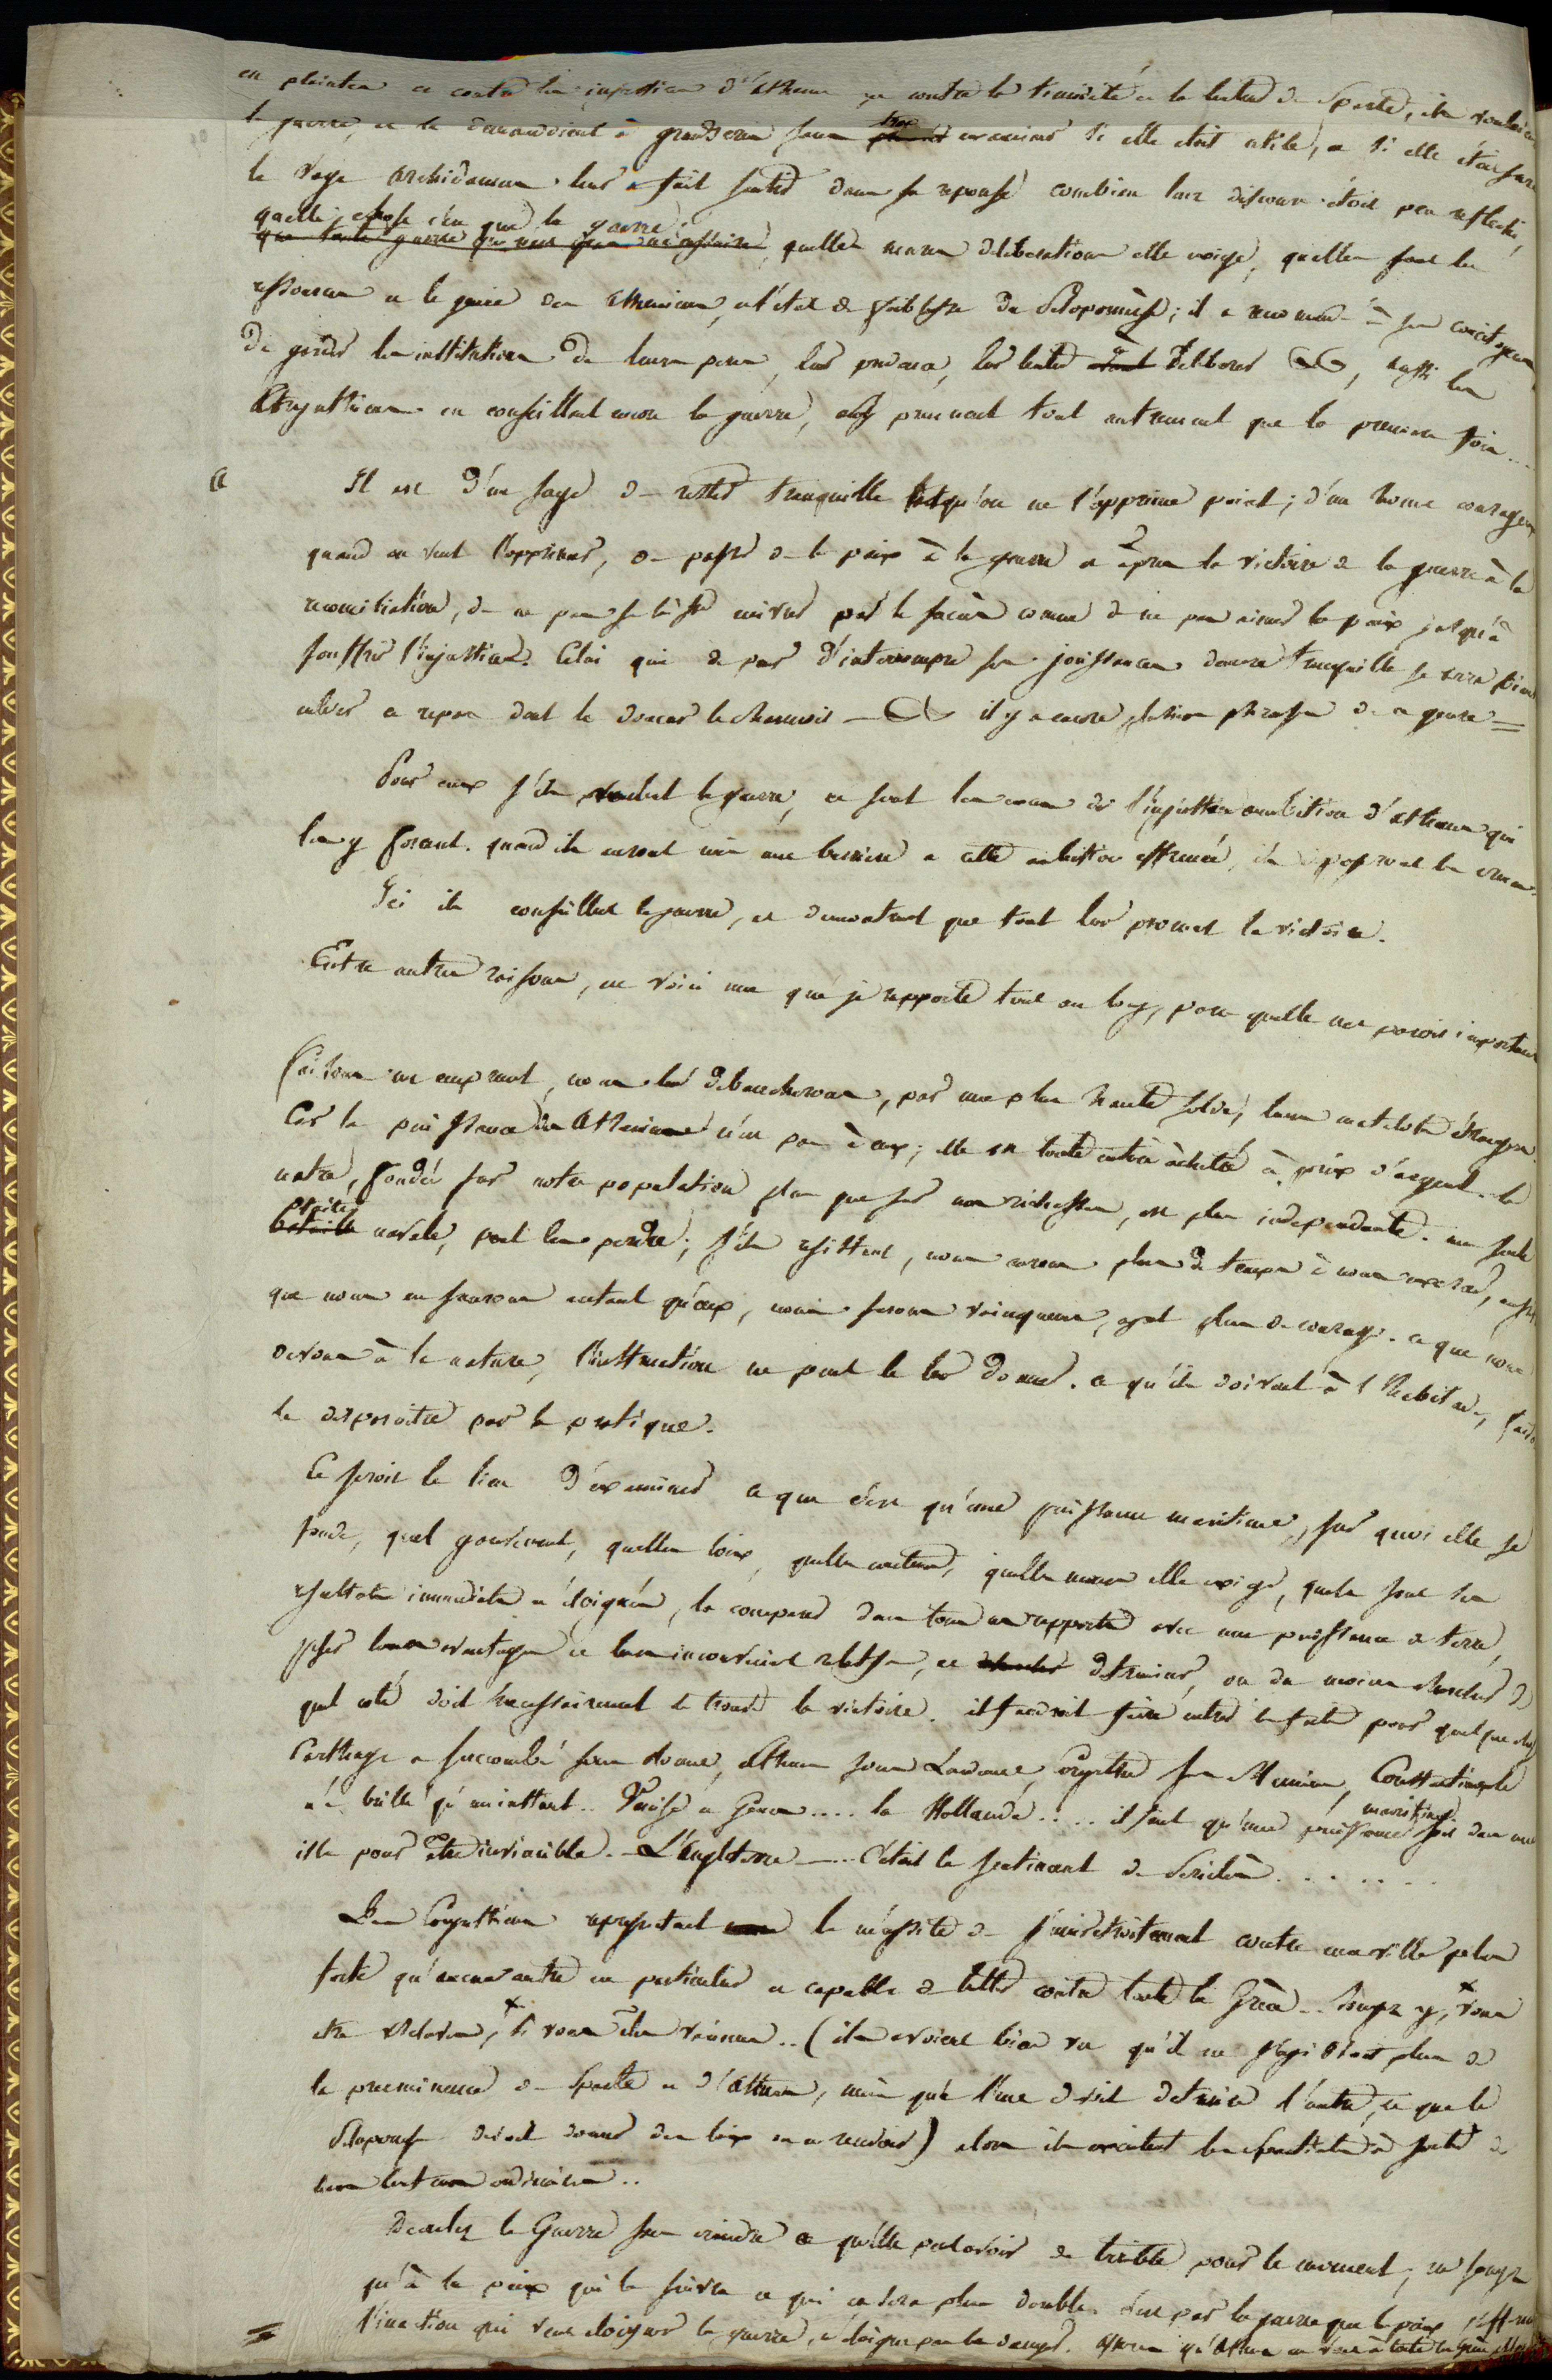 en plaintes et contre les injustices d'Athenes et contre la timidité et la lenteur de Sparte, ils vouloient
la guerre, et la demandoient à grands cris sans trop examiner si elle etoit utile, et si elle étoit juste
le sage Archidamus leur a fait sentir dans sa reponse combien leur discours étoit peu reflechi,
quelle chose c'est que la guerre, quelles mures deliberations elle exige, quelles sont les
ressources et le genie des Atheniens, et l'état de foiblesse du Peloponnese; il a recommandé à ses concitoyens
de garder les institutions de leurs peres, leur prudence, leur lenteur à deliberer, aussi les
Corynthiens en conseillant encore la guerre, s'y prennent tout autrement que la premiere fois...
Il est d'un sage de rester tranquille lorsqu'on ne l'opprime point; d'un homme courageux
quand on veut l'opprimer, de passer de la paix à la guerre et après la victoire de la guerre à la
reconciliation, de ne pas se laisser enivrer par le succès comme de ne pas aimer la paix jusqu'à
souffrir l'injustice. Celui qui de peur d'interrompre ses jouissances demeure tranquille se verra bientôt
enlever ce repos dont la douceur le charmoit — il y a encore plusieurs phrases de ce genre =
Pour eux s'ils veulent la guerre, ce sont les maux de l'injuste ambition d'Athenes qui
les y forcent. quand ils auront mis une barriere a cette ambition effrenée, ils poseront les armes.
Ici ils conseillent la guerre, et demontrent que tout leur promet la victoire.
Entre autres raisons, en voici une que je rapporte tout au long, parce qu'elle me paroit importante
Faisons un emprunt, nous leur debaucherons, par une plus haute solde, leurs matelots étrangers.
Car la puissance des Atheniens n'est pas à eux; elle est toute entière achetée à prix d'argent. la
notre, fondée sur notre population plus que sur nos richesses, est plus independante. une seule
defaite navale, peut les perdre; s'ils resistent, nous aurons plus de temps à nous exercer, aussitot
que nous en saurons autant qu'eux, nous serons vainqueurs, ayant plus de courage. ce que nous
devons à la nature, l'instruction ne peut le leur donner. ce qu'ils doivent à l'habitude, faisons
le disparoitre par la pratique.
Ce seroit le lieu d'examiner ce que c'est qu'une puissance maritime, sur quoi elle se
fonde, quel gouvernement, quelles loix, quelles coutumes, quelles mœurs elle exige, quels sont ses
resultats immediats et éloignés, la comparer dans tous ses rapports avec une puissance de terre,
peser leurs avantages et leurs inconveniens relatifs, et determiner, ou du moins chercher de
quel coté doit necessairement se trouver la victoire. il faudroit faire entrer les faits pour quelque chose
Carthage a succombé sous Rome, Athenes sous Lacedemone, Corynthe sous Mummius, Constantinople
n'a brillé qu'un instant.. Venise et Genes.... la Hollande.... il faut qu'une puissance maritime soit dans une
isle pour être invincible. - L'Angleterre — ... C'étoit le sentiment de Pericles.......
Les Corynthiens representent la necessité de s'unir étroitement contre une ville plus
forte qu'aucune autre en particulier et capable de lutter contre toute la Grece.. Songez y, vous
etes vaincus, si vous êtes desunis.. (ils avoient bien vu qu'il ne s'agissoit plus de
la preeminence de Sparte et d'Athenes, mais que l'une devoit detruire l'autre, et que le
Peloponese devoit donner des loix ou en recevoir) alors ils excitent les Spartiates à sortir de
leurs lenteurs ordinaires..
Decretez la Guerre sans craindre ce qu'elle peut avoir de terrible pour le moment; ne songez
qu'à la paix qui la suivra et qui en sera plus durable. c'est par la guerre que la paix s'affermit
l'inaction qui veut eloigner la guerre, n'éloigne pas les dangers. Athenes en veut à toute la Grece